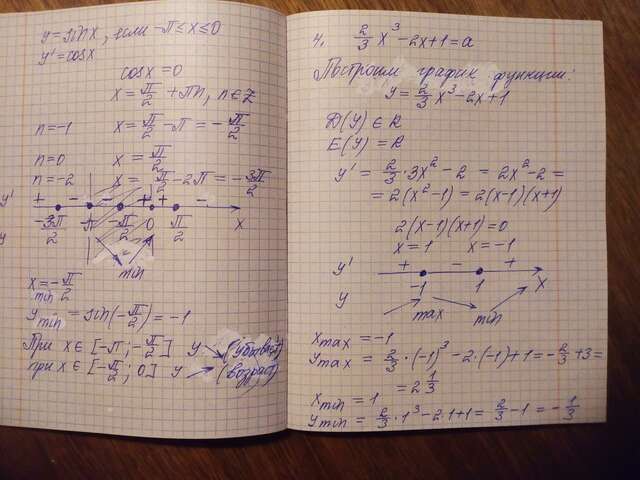 y = sinx, если -π ≤ x ≤ 0
y' = cosx
cosx = 0
x = π/2 + πn, n ∈ Z
n = -1 x = π/2 - π = -π/2
n = 0 x = π/2
n = -2 x = π/2 - 2π = -3π/2
y' + - - + + -
-3π/2 -π -π/2 0 π/2 x
y
min
x min = -π/2
y min = sin(-π/2) = -1
При x ∈ [-π; -π/2] y ↘ (убывает)
при x ∈ [-π/2; 0] y ↗ (возраст)
4. 2/3 x³ - 2x + 1 = a
Построим график функции:
y = 2/3 x³ - 2x + 1
D(y) ∈ R
E(y) = R
y' = 2/3 · 3x² - 2 = 2x² - 2 =
= 2(x² - 1) = 2(x-1)(x+1)
2(x-1)(x+1) = 0
x = 1 x = -1
y' + - +
-1 1 x
y
max min
x max = -1
y max = 2/3 · (-1)³ - 2·(-1) + 1 = -2/3 + 3 =
= 2 1/3
x min = 1
y min = 2/3 · 1³ - 2·1 + 1 = 2/3 - 1 = -1/3